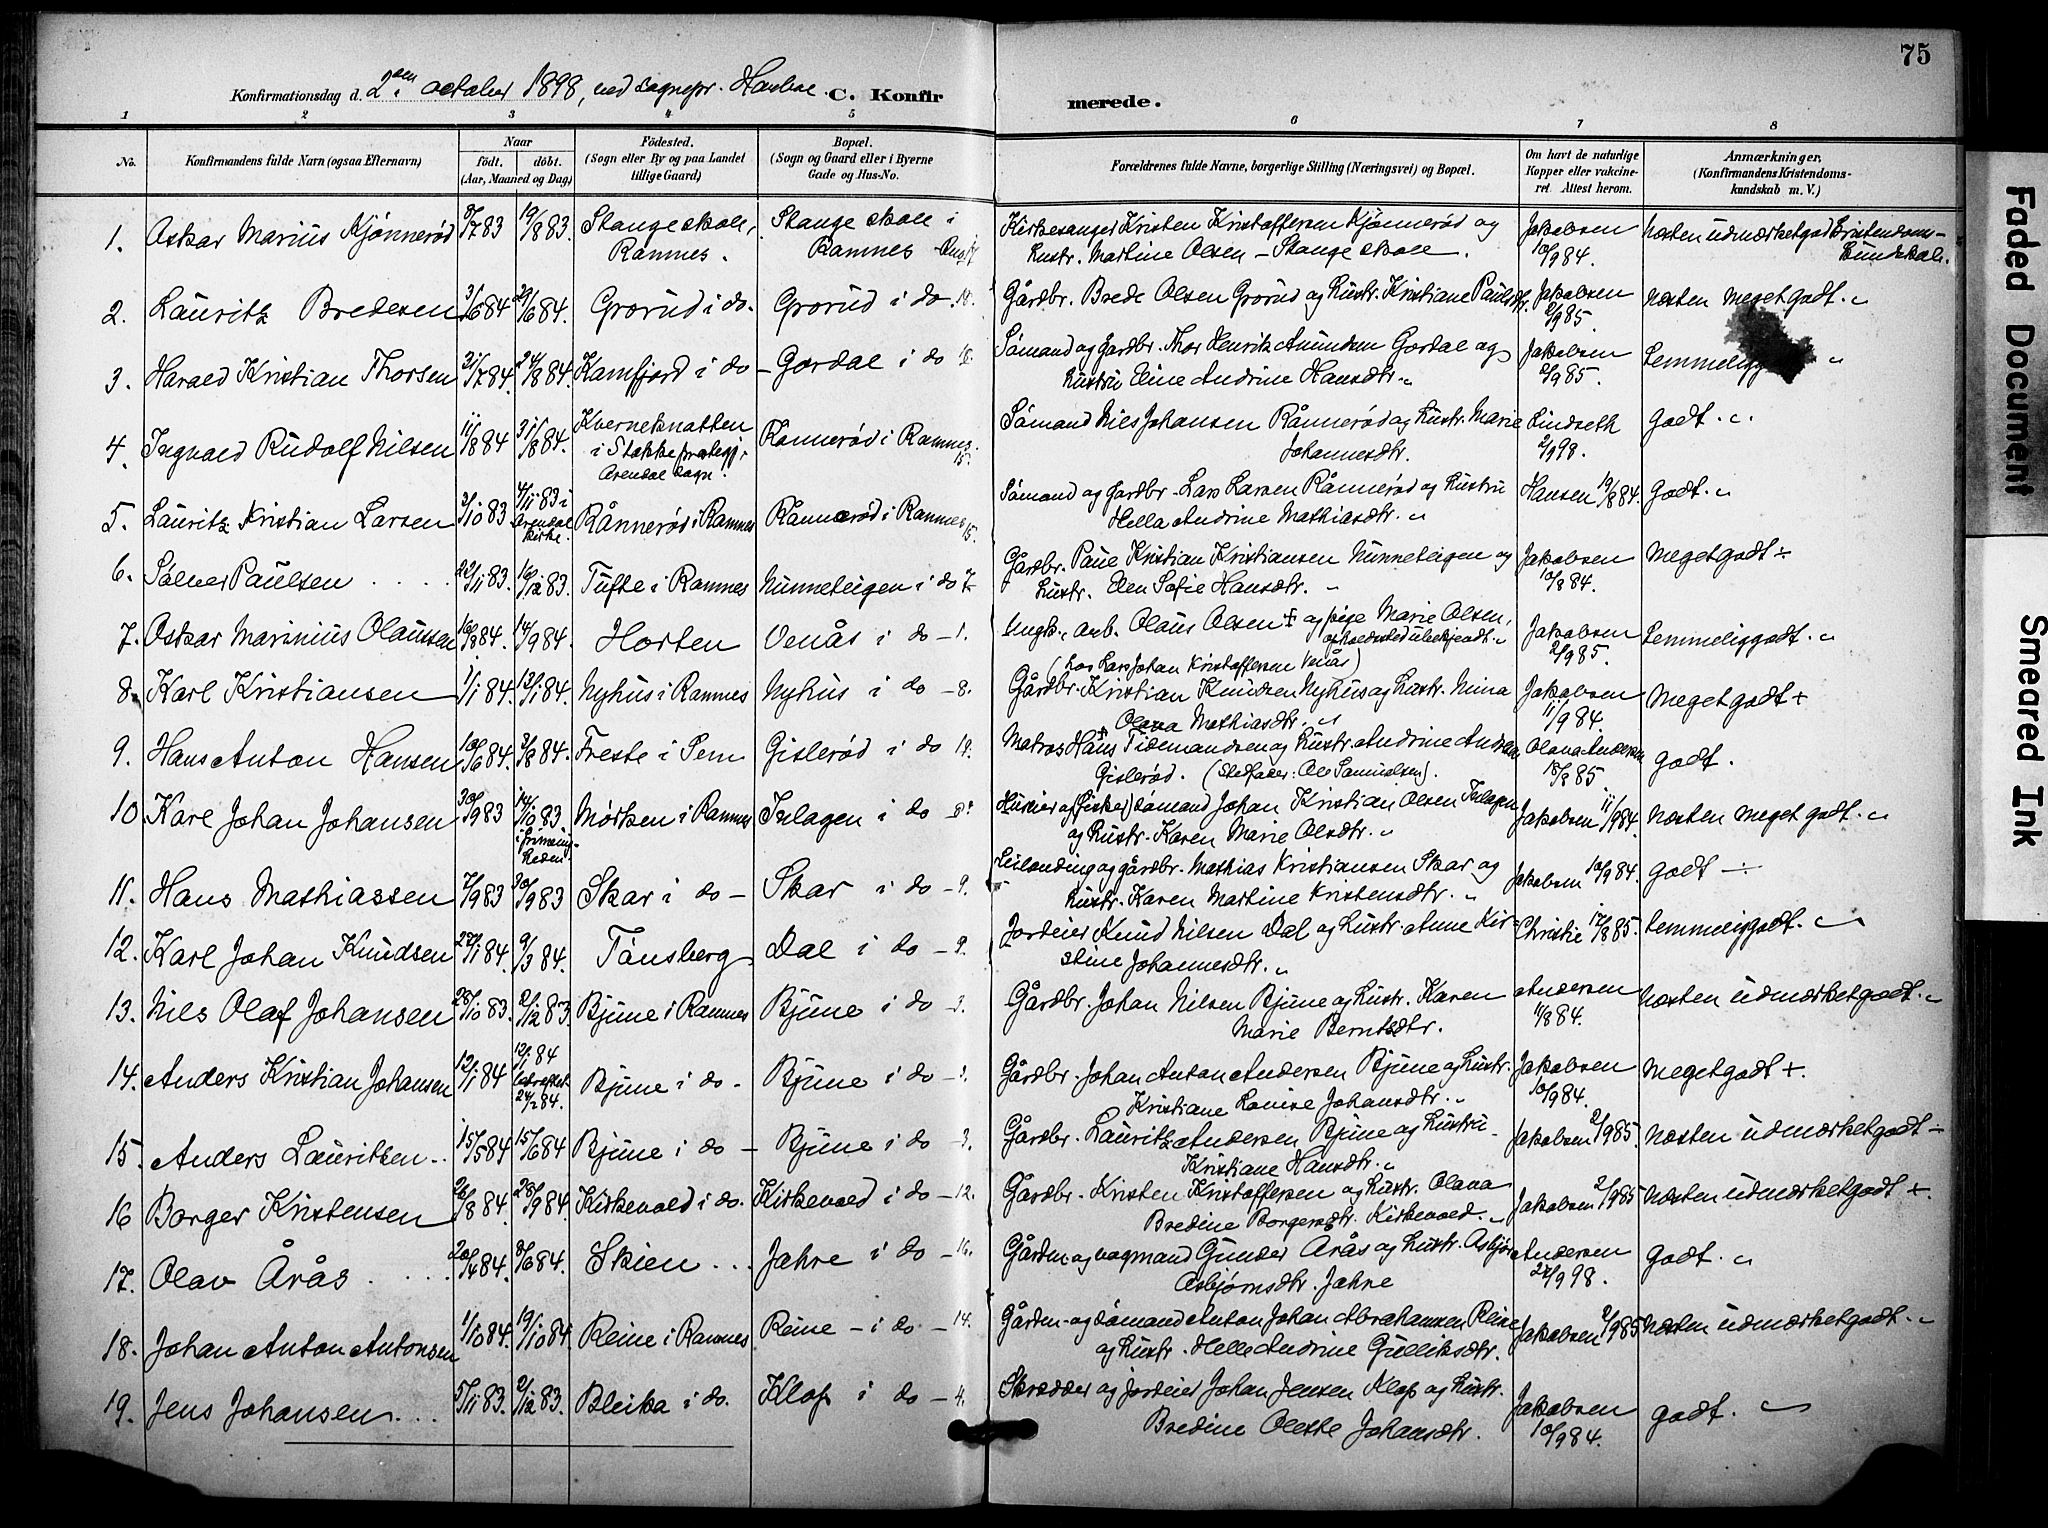 75
Konfirmationsdag d. 2den october 1898, ved sognepr. C. Konfirmerede.
1 2 3 4 5 6 7 8
No. Konfirmandens fulde Navn (ogsaa Efternavn) Naar födt. döbt. (Aar, Maaned og Dag) Födested. (Sogn eller By og paa Landet tillige Gaard) Bopæl. (Sogn og Gaard eller i Byerne Gade og Hus-No. Forældrenes fulde Navne, borgerlige Stilling (Næringsvei) og Bopæl. Om havt de naturlige Kopper eller vakcineret. Attest herom. Anmærkninger, (Konfirmandens Kristendomskundskab m. V.)
1. Oskar Marius Kjønnerød 8/7 83 19/8 83. Stange skole, Ramnes. Stange skole i Ramnes Kirkesanger Kristen Kristoffersen Kjønnerød og hustr. Martine Olsen – Stange skole. Jakobsen 10/9 84. Næsten udmærket god kristendoms-kundskab.
2. Lauritz Bredesen 3/6 84 29/6 84. Grorud i do. Grorud i do 18. Gårdbr. Brede Olsen Grorud og hustr. Kristiane Paulsdtr. Jakobsen 2/9 85. Næsten meget godt. "
3. Harald Kristian Thorsen 31/7 84. 24/8 84. Kamfjord i do – Gordal i do 18. Sømand og gardbr. Thor Henrik Amundsen Gordal og hustru Eline Andrine Hansdtr. " Jakobsen 2/9 85. Temmelig "
4. Ingvald Rudolf Nilsen 11/8 84 31/8 84. Kverneknatten i Stokke præstegj. Arendal sogn. Rånnerød i Ramnes 15. Sømand Nils Johansen Rånnerød og hustr. Marie Johannesdtr. Lindseth 2/9 98. Godt. "
5. Lauritz Kristian Larsen 3/10 83 4/11 83 i Arendal kirke. Rånnerød i Ramnes Rånnerød i Ramnes 15. Sømand og gardbr. Lars Larsen Rånnerød og hustru Hella Andrine Mathiasdtr. " Hansen 19/8 84. Godt. "
6. Sølver Paulsen 22/11 83. 16/12 83. Tufte i Ramnes Nunneteigen i do 7. Gårdbr. Paul Kristian Kristiansen Nunneteigen og hustr. Elen Sofie Hansdtr. " Jakobsen 10/8 84. Meget godt +
7. Oskar Marinius Olaussen 16/8 84. 14/9 84. Horten Venås i do – 1. Ungk. arb. Olaus Olsen + og pige Marie Olsen, opholdssted ubekjendt. " (hos Lars Johan Kristoffersen Venås) Jakobsen 2/9 85. Temmelig godt. "
8. Karl Kristiansen 1/1 84. 13/1 84. Nyhus i Ramnes Nyhus i do – 8. Gårdbr. Kristian Knudsen Nyhus og hustr. Nina Olava Mathiasdtr. " Jakobsen 11/9 84. Meget godt +
9. Hans Anton Hansen 10/6 84. 3/8 84. Freste i Sem Gislerød i do 18. Matros Hans Tidemandsen og hustr. Andrine Andersen Gislerød. (Stedfader: Ole Samuelsen). Olava Andersen 18/8 85. godt.
10. Karl Johan Johansen 30/9 83 14/10 83 i frimenigheden. Mørken i Ramnes Inlagen i do 8. Huseier og (fisker) sømand Johan Kristian Olsen Inlagen og hustr. Karen Marie Olsdtr. " Jakobsen 11/9 84. Næsten meget godt. "
11. Hans Mathiassen 7/9 83 30/9 83 Skar i do – Skar i do – 9. og gårdbr. Mathias Kristiansen Skar og hustr. Karen Martine Kristensdtr. " Jakobsen 10/9 84. godt –
12. Karl Johan Knudsen 27/1 84. 9/3 84. Tønsberg Dal i do – 9. Jordeier Knud Nilsen Dal og hustr. Anne Kirstine Johannesdtr. " Christie 17/8 85. Temmelig godt. "
13. Nils Olaf Johansen 28/10 83. 2/12 83 Bjune i Ramnes Bjune i do – 3. Gårdbr. Johan Nilsen Bjune og hustr. Karen Marie Berntsdtr. Andersen 11/8 84. Næsten udmærket godt. "
14. Anders Kristian Johansen 12/1 84 12/1 84 24/2 84. Bjune i do. Bjune i do – 3. Gårdbr. Johan Anton Andersen Bjune og hustr. Kristiane Louise Johansdtr. " Jakobsen 10/9 84. Meget godt +.
15. Anders Lauritsen 15/5 84 15/6 84 Bjune i do – Bjune i do – 3. Gårdbr. Lauritz Andersen Bjune og hustru Kristiane Hansdtr. " Jakobsen 2/9 85 Næsten udmærket godt –
16 Borger Kristensen 26/8 84. 28/9 84. Kirkevold i do. Kirkevold i do – 12. Gårdbr. Kristen Kristoffersen og hustr. Olava Bredine Borgersdtr. Kirkevold. " Jakobsen 2/9 85 Næsten udmærket godt +.
17. Olav Årås 20/4 84. 8/6 84. Skien Jahre i do – 16. Gården og vogmand Gunder Årås og hustr. Asbjør Asbjørnsdtr. Jahre Andersen 27/9 98. Godt. "
18. Johan Anton Antonsen 1/10 84. 19/10 84. Reine i Ramnes Reine – i do – 14. Gården- og sømand Anton Johan Abrahamsen Reine og hustr. Helle Andrine Gulliksdtr. Jakobsen 2/9 85 Næsten udmærket godt. "
19. Jens Johansen 5/11 83. 2/12 83. Bleika i do. Klop i do – 4. Skrædder og jordeier Johan Jensen Klop og hustr. Bredine Oleste Johansdtr. Jakobsen 10/9 84. godt. "
Faded Document
Smeared Ink